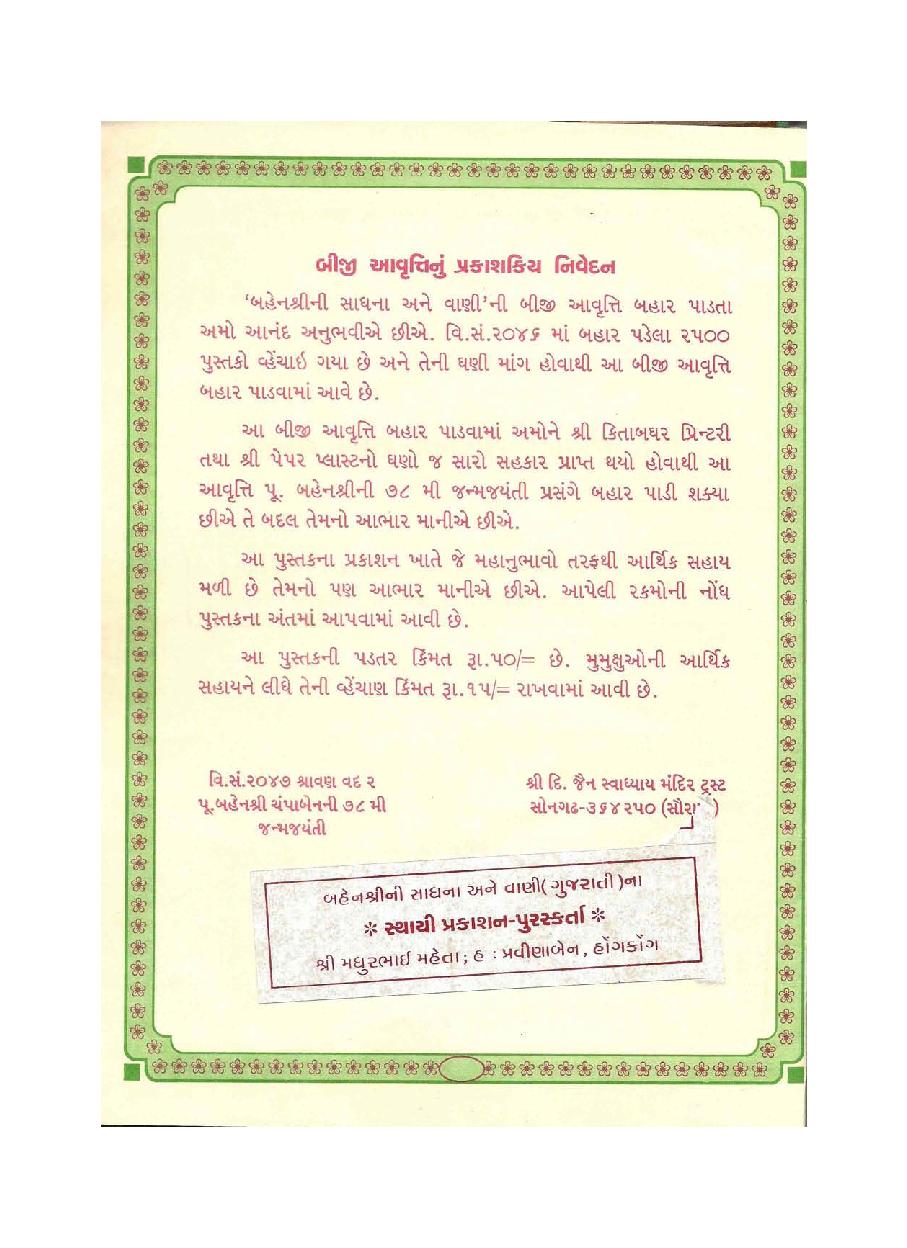 બીજી આવૃત્તિનું પ્રકાશકિય નિવેદન
'બહેનશ્રીની સાધના અને વાણી'ની બીજી આવૃત્તિ બહાર પાડતા
અમો આનંદ અનુભવીએ છીએ. વિ.સં.૨૦૪૬ માં બહાર પડેલા ૨૫૦૦
પુસ્તકો વ્હેંચાઇ ગયા છે અને તેની ઘણી માંગ હોવાથી આ બીજી આવૃત્તિ
બહાર પાડવામાં આવે છે.
આ બીજી આવૃત્તિ બહાર પાડવામાં અમોને શ્રી કિતાબઘર પ્રિન્ટરી
તથા શ્રી પેપર પ્લાસ્ટનો ઘણો જ સારો સહકાર પ્રાપ્ત થયો હોવાથી આ
આવૃત્તિ પૂ. બહેનશ્રીની ૭૮ મી જન્મજયંતી પ્રસંગે બહાર પાડી શક્યા
છીએ તે બદલ તેમનો આભાર માનીએ છીએ.
આ પુસ્તકના પ્રકાશન ખાતે જે મહાનુભાવો તરફથી આર્થિક સહાય
મળી છે તેમનો પણ આભાર માનીએ છીએ. આપેલી રકમોની નોંધ
પુસ્તકના અંતમાં આપવામાં આવી છે.
આ પુસ્તકની પડતર કિંમત રૂા.૫૦/= છે. મુમુક્ષુઓની આર્થિક
સહાયને લીધે તેની વ્હેંચાણ કિંમત રૂા.૧૫/= રાખવામાં આવી છે.
વિ.સં.૨૦૪૭ શ્રાવણ વદ ૨
પૂ.બહેનશ્રી ચંપાબેનની ૭૮ મી
જન્મજયંતી
શ્રી દિ. જૈન સ્વાધ્યાય મંદિર ટ્રસ્ટ
સોનગઢ-૩૬૪૨૫૦
બહેનશ્રીની સાધના અને વાણી(ગુજરાતી)ના
* સ્થાયી પ્રકાશન-પુરસ્કર્તા *
શ્રી મધુરભાઈ મહેતા; હ : પ્રવીણાબેન, હોંગકોંગ